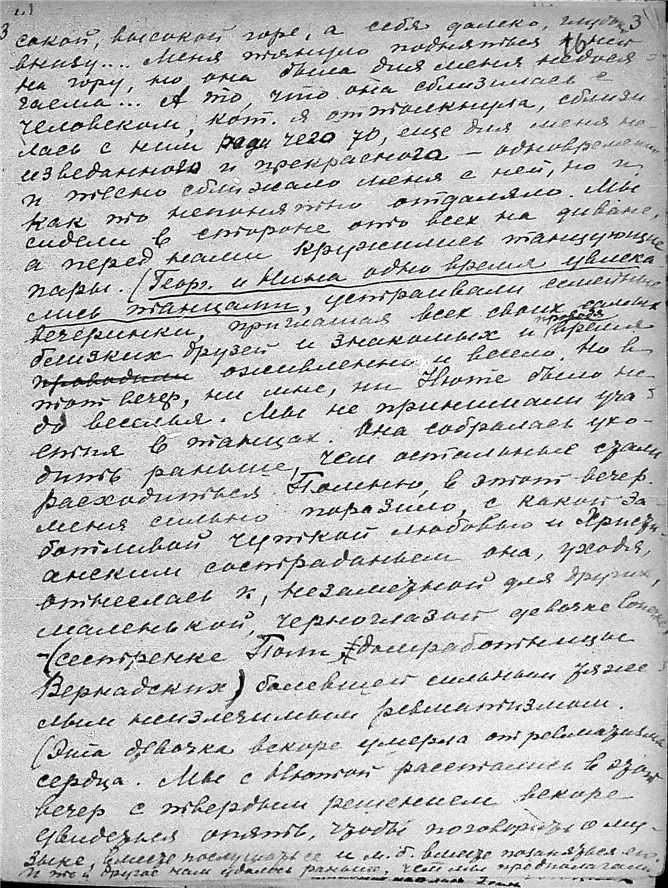 3 3
16
сокой, высокой горе, а себя далеко, глубоко
внизу.... Меня тянуло подняться к ней
на гору, но она была для меня недося-
гаема... А то, что она сблизилась с
человеком, кот. я оттолкнула, сблизи
лась с ним ради чего то, еще для меня не-
изведанного и прекрасного — одновременно
и тесно сближало меня с ней, но и
как то непонятно отдаляло. Мы
сидели в стороне ото всех на диване,
а перед нами кружились танцующие
пары. (Георг. и Нина одно время увлека
лись танцами, устраивали семейные
вечеринки, приглашая всех своих самых
близких друзей и знакомых и проводя время
проводили оживленно и весело. Но в
тот вечер, ни мне, ни Нюте было не
до веселья. Мы не принимали уча-
стия в танцах. Она собралась ухо-
дить раньше, чем остальные стали
расходиться. Помню, в этот вечер
меня сильно поразило, с какой за-
ботливой чуткой любовью и Христи
анским состраданьем она, уходя,
отнеслась к, незаметной для других,
маленькой, черноглазой девочке
(сестренке Поли, домработницы
Вернадских) болевшей сильным тяже
лым неизлечимым ревматизмом.
(Эта девочка вскоре умерла от ревматизма
сердца. Мы с Нютой расстались в этот
вечер с твердым решением вскоре
увидеться опять, чтобы поговорить о му-
зыке, вместе послушать ее и м. б. вместе позаняться ею.
И то и другое нам удалось раньше, чем мы предполагали